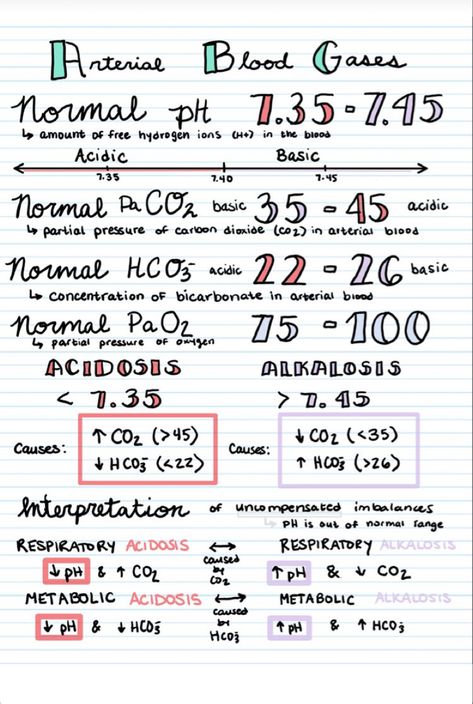 Arterial Blood Gases
Normal pH 7.35 - 7.45
↳ amount of free hydrogen ions (H+) in the blood
Acidic Basic
7.35 7.40 7.45
Normal PaCO2 basic 35 - 45 acidic
↳ partial pressure of carbon dioxide (CO2) in arterial blood
Normal HCO3- acidic 22 - 26 basic
↳ concentration of bicarbonate in arterial blood
Normal PaO2 75 - 100
↳ partial pressure of oxygen
ACIDOSIS ALKALOSIS
< 7.35 > 7.45
Causes: ↑ CO2 (>45) Causes: ↓ CO2 (<35)
↓ HCO3- (<22) ↑ HCO3- (>26)
Interpretation of uncompensated imbalances
↳ pH is out of normal range
RESPIRATORY ACIDOSIS ↔ RESPIRATORY ALKALOSIS
caused by CO2
↓ pH & ↑ CO2 ↑ pH & ↓ CO2
METABOLIC ACIDOSIS ↔ METABOLIC ALKALOSIS
caused by HCO3-
↓ pH & ↓ HCO3- ↑ pH & ↑ HCO3